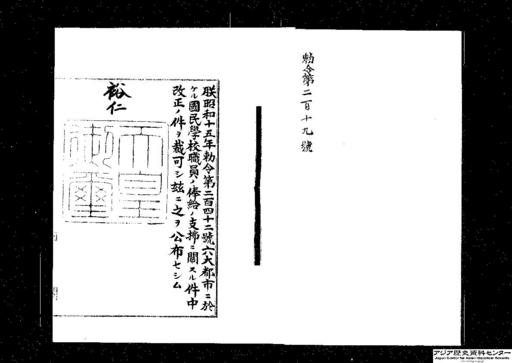 勅令第二百十九號
朕昭和十五年勅令第二百四十二號六大都市ニ於
ケル國民學校職員ノ俸給ノ支拂ニ關スル件中
改正ノ件ヲ裁可シ玆ニ之ヲ公布セシム
裕仁
天皇御璽
アジア歴史資料センター
Japan Center for Asian Historical Records